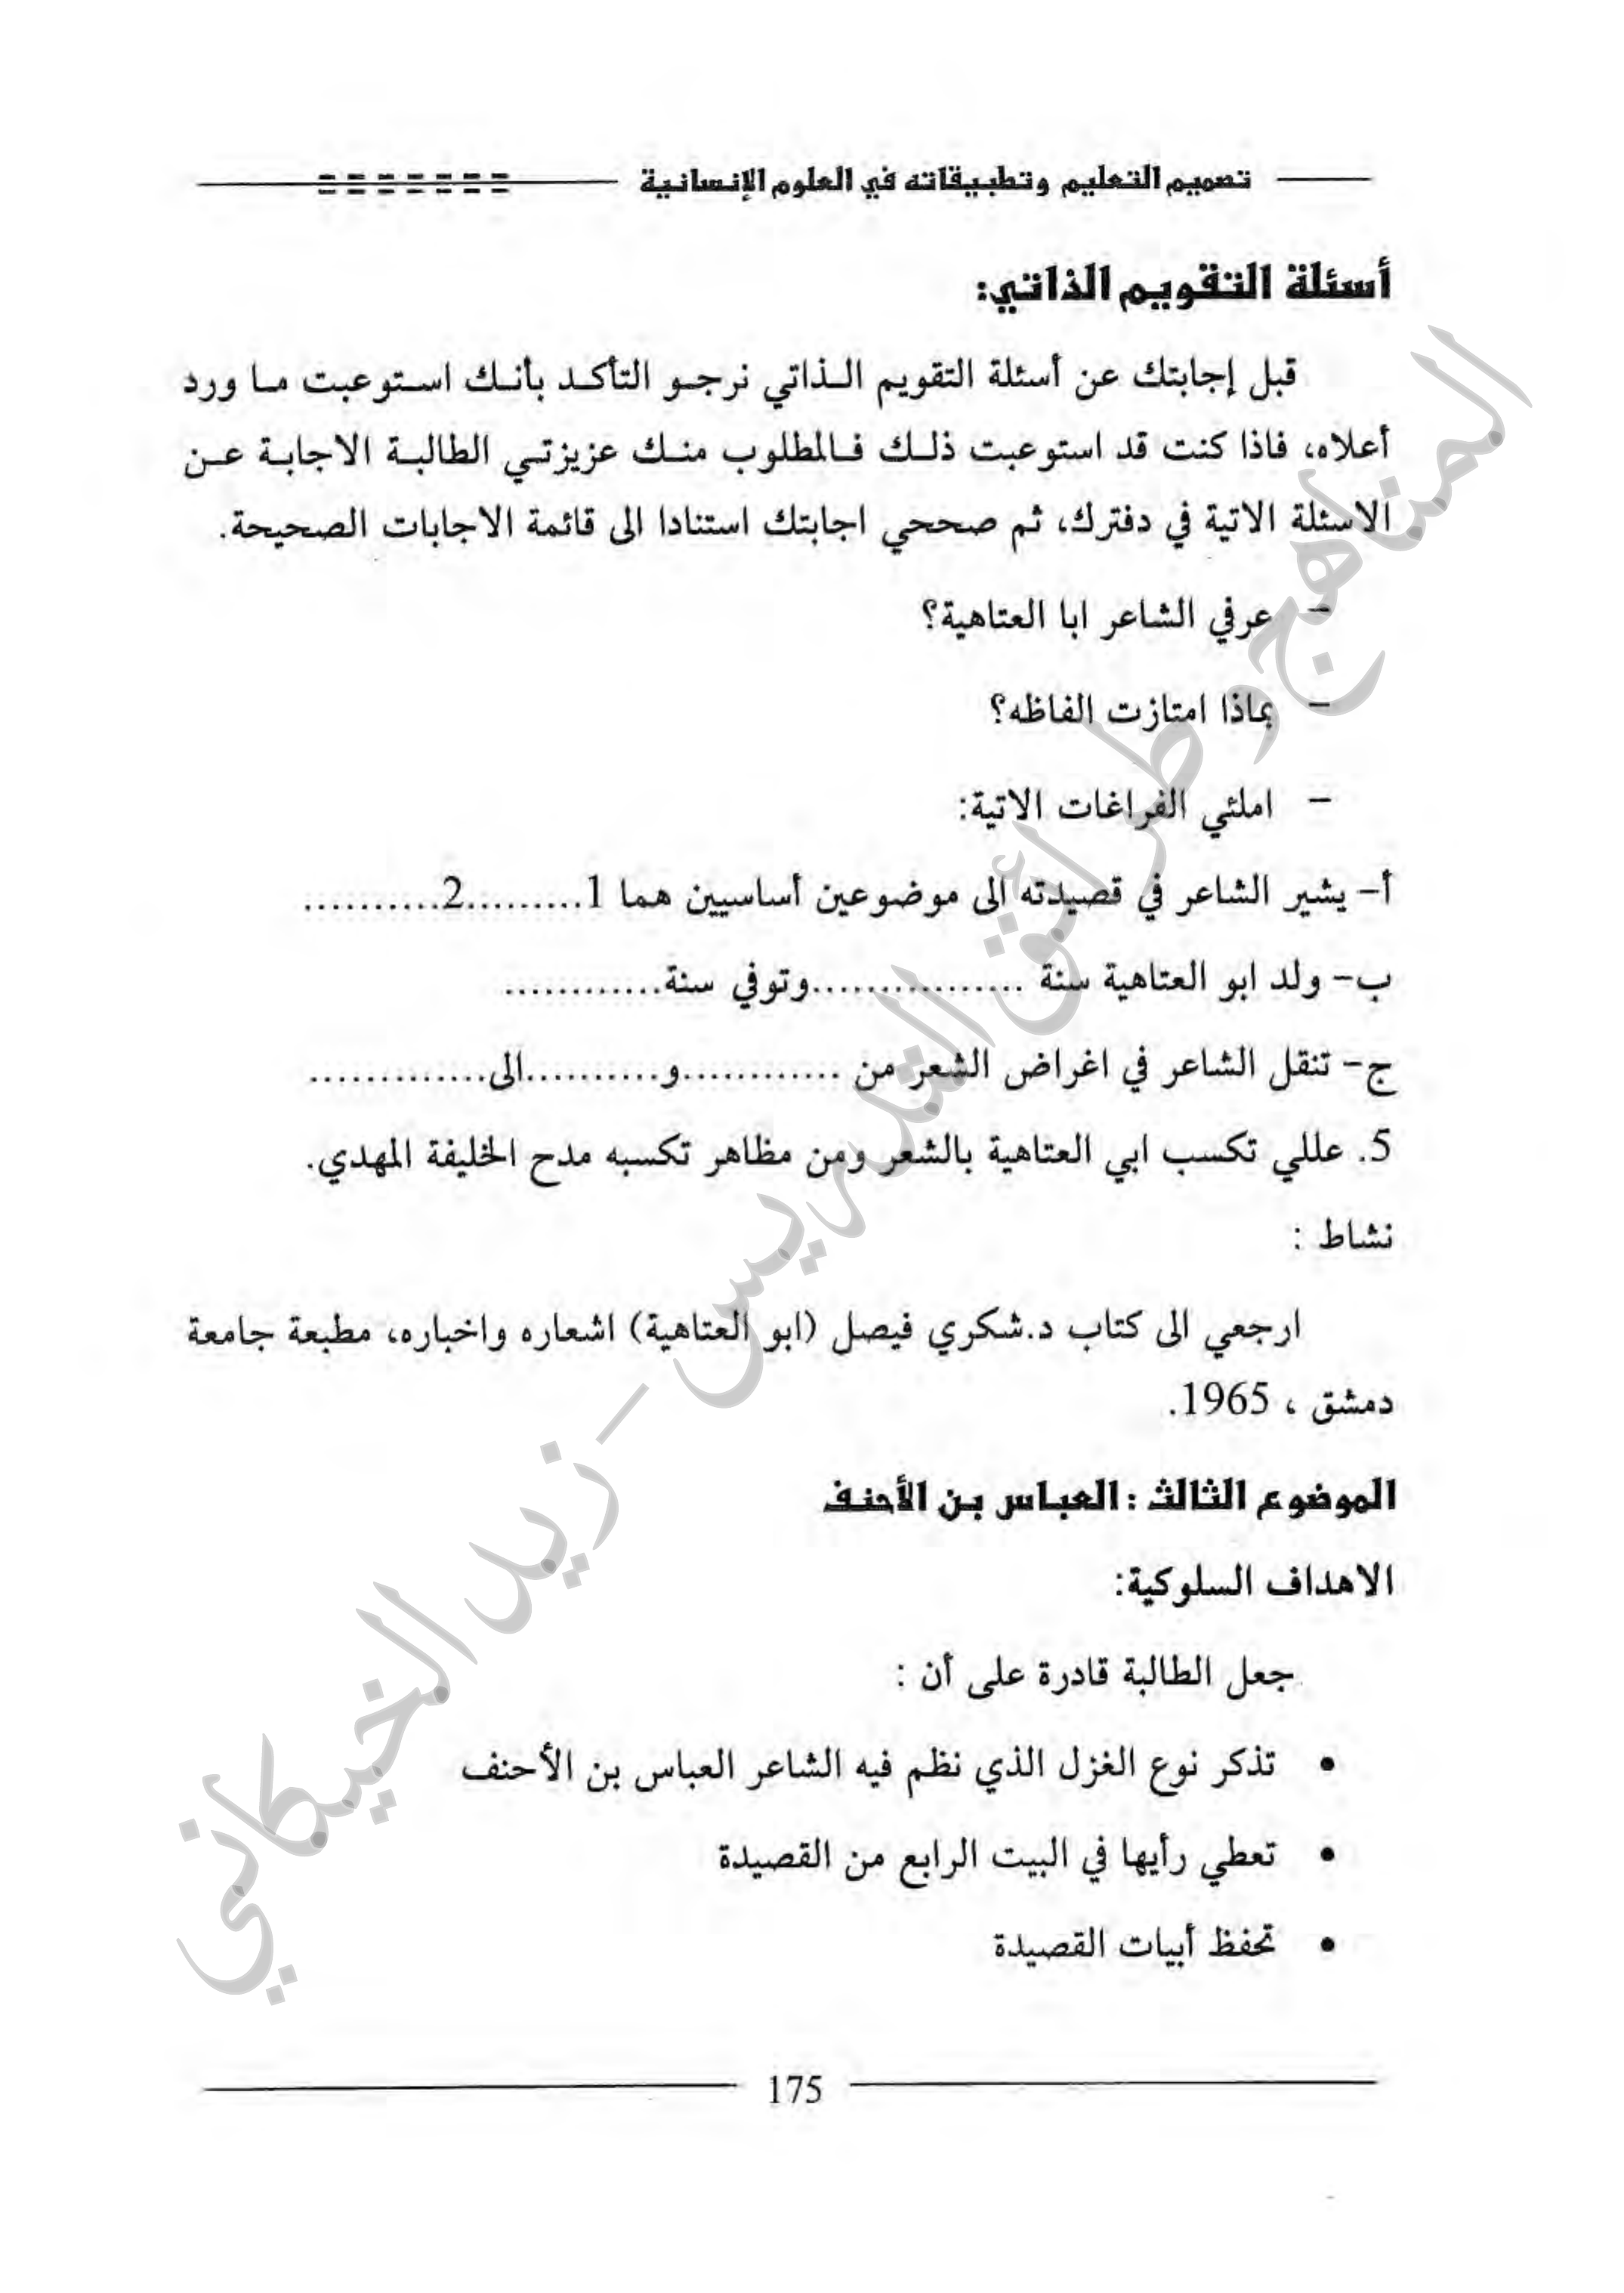 تصميم التعليم وتطبيقاته في العلوم الإنسانية
أسئلة التقويم الذاتي:
قبل إجابتك عن أسئلة التقويم الذاتي نرجو التأكد بأنك استوعبت ما ورد
أعلاه، فاذا كنت قد استوعبت ذلك فالمطلوب منك عزيزتي الطالبة الاجابة عن
الاسئلة الاتية في دفترك، ثم صححي اجابتك استنادا الى قائمة الاجابات الصحيحة.
– عرفي الشاعر ابا العتاهية؟
– بماذا امتازت الفاظه؟
– املئي الفراغات الاتية:
أ- يشير الشاعر في قصيدته الى موضوعين أساسيين هما 1.........2..........
ب- ولد ابو العتاهية سنة ................وتوفي سنة............
ج- تنقل الشاعر في اغراض الشعر من ............و..........الى.............
5. عللي تكسب ابي العتاهية بالشعر ومن مظاهر تكسبه مدح الخليفة المهدي.
نشاط :
ارجعي الى كتاب د.شكري فيصل (ابو العتاهية) اشعاره واخباره، مطبعة جامعة
دمشق ، 1965.
الموضوع الثالث : العباس بن الأحنف
الاهداف السلوكية:
جعل الطالبة قادرة على أن :
• تذكر نوع الغزل الذي نظم فيه الشاعر العباس بن الأحنف
• تعطي رأيها في البيت الرابع من القصيدة
• تحفظ أبيات القصيدة
175
المناهج وطرائق التدريس - زيد الخيكاني